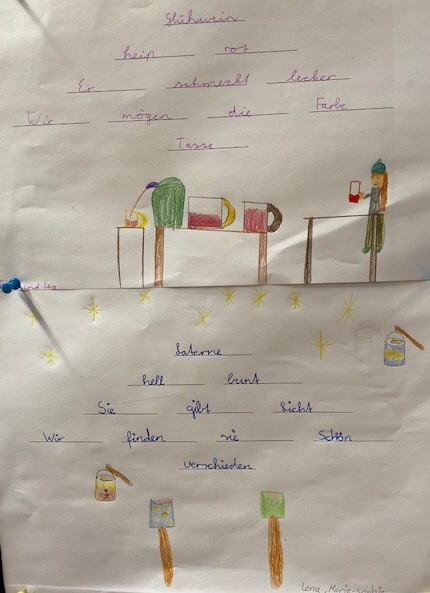 Glühwein
heiß rot
Er schmeckt lecker
Wir mögen die Farbe
Tasse
und Lea
Laterne
hell bunt
Sie gibt Licht
Wir finden sie Schön
verschieden
Lena, Marie-Sophie